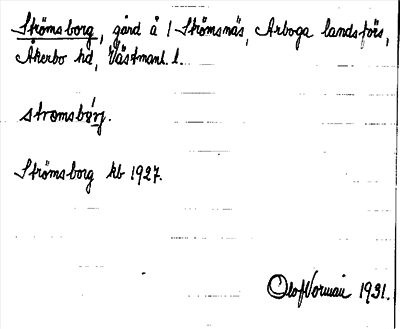 Strömsborg, gård å 1 Strömsnäs, Arboga landsförs,
Åkerbo hd, Västmanl. l.
stromsbórj.
Strömsborg kb 1927.
Olof Norman 1931.